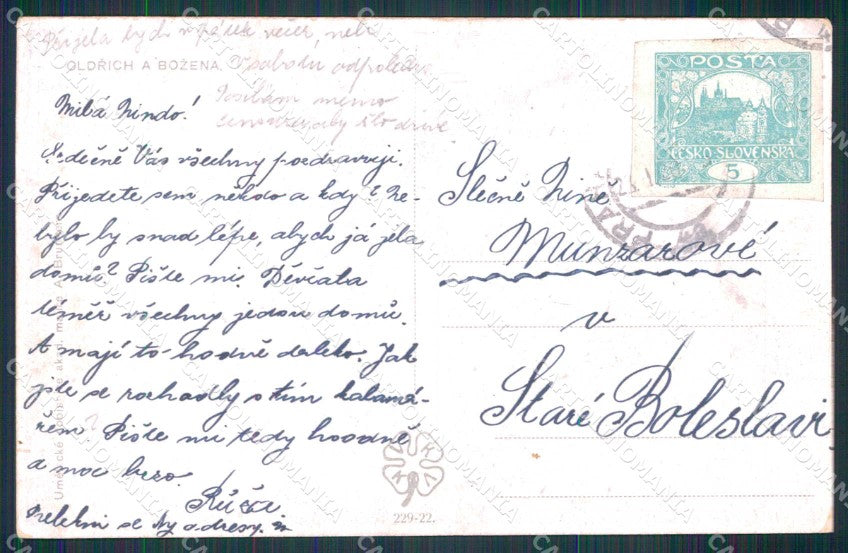 Přijela bych v pátek večer, nebo
v sobotu odpoledne
OLDŘICH A BOŽENA.
Milá Nindo!
Srdečně Vás všechny pozdravuji.
Přijedete sem někdo a kdy? Ne-
bylo by snad lépe, abych já jela
domů? Pište mi. Děvčata
téměř všechny jedou domů.
A mají to hodně daleko. Jak
jste se rozhodly s tím kalamá-
řem? Pište mi tedy hooodně
a moc brzo.
Růža
Nelekni se by adresy.
Slečně Nine
Munzarové
v
Staré Boleslavi
POŠTA
ČESKO-SLOVENSKÁ
5
PRAHA
V K V K
229-22.
CARTOLINOMANIA